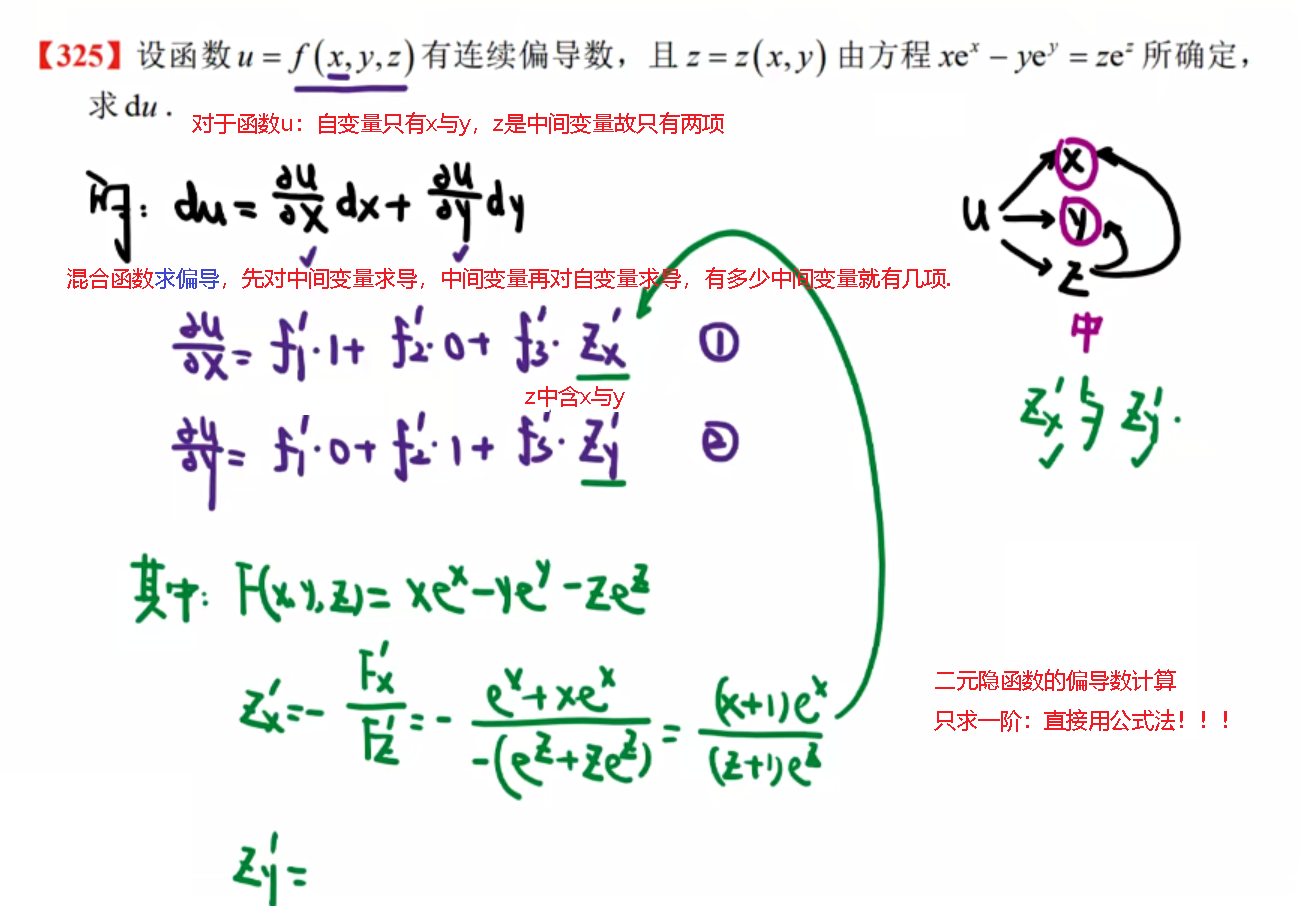 【325】设函数 u = f(x, y, z) 有连续偏导数，且 z = z(x, y) 由方程 xeˣ − yeʸ = zeᶻ 所确定，
求 du．
对于函数u：自变量只有x与y，z是中间变量故只有两项
du = ∂u/∂x dx + ∂u/∂y dy
u x y z
中
混合函数求偏导，先对中间变量求导，中间变量再对自变量求导，有多少中间变量就有几项.
∂u/∂x = f₁′·1 + f₂′·0 + f₃′·zₓ′ ①
z中含x与y
zₓ′ 与 zᵧ′.
∂u/∂y = f₁′·0 + f₂′·1 + f₃′·zᵧ′ ②
其中: F(x,y,z) = xeˣ − yeʸ − zeᶻ
zₓ′ = − Fₓ′/F_z′ = − (eˣ + xeˣ)/(−(eᶻ + zeᶻ)) = (x+1)eˣ/((z+1)eᶻ)
二元隐函数的偏导数计算
只求一阶：直接用公式法！！！
zᵧ′ =